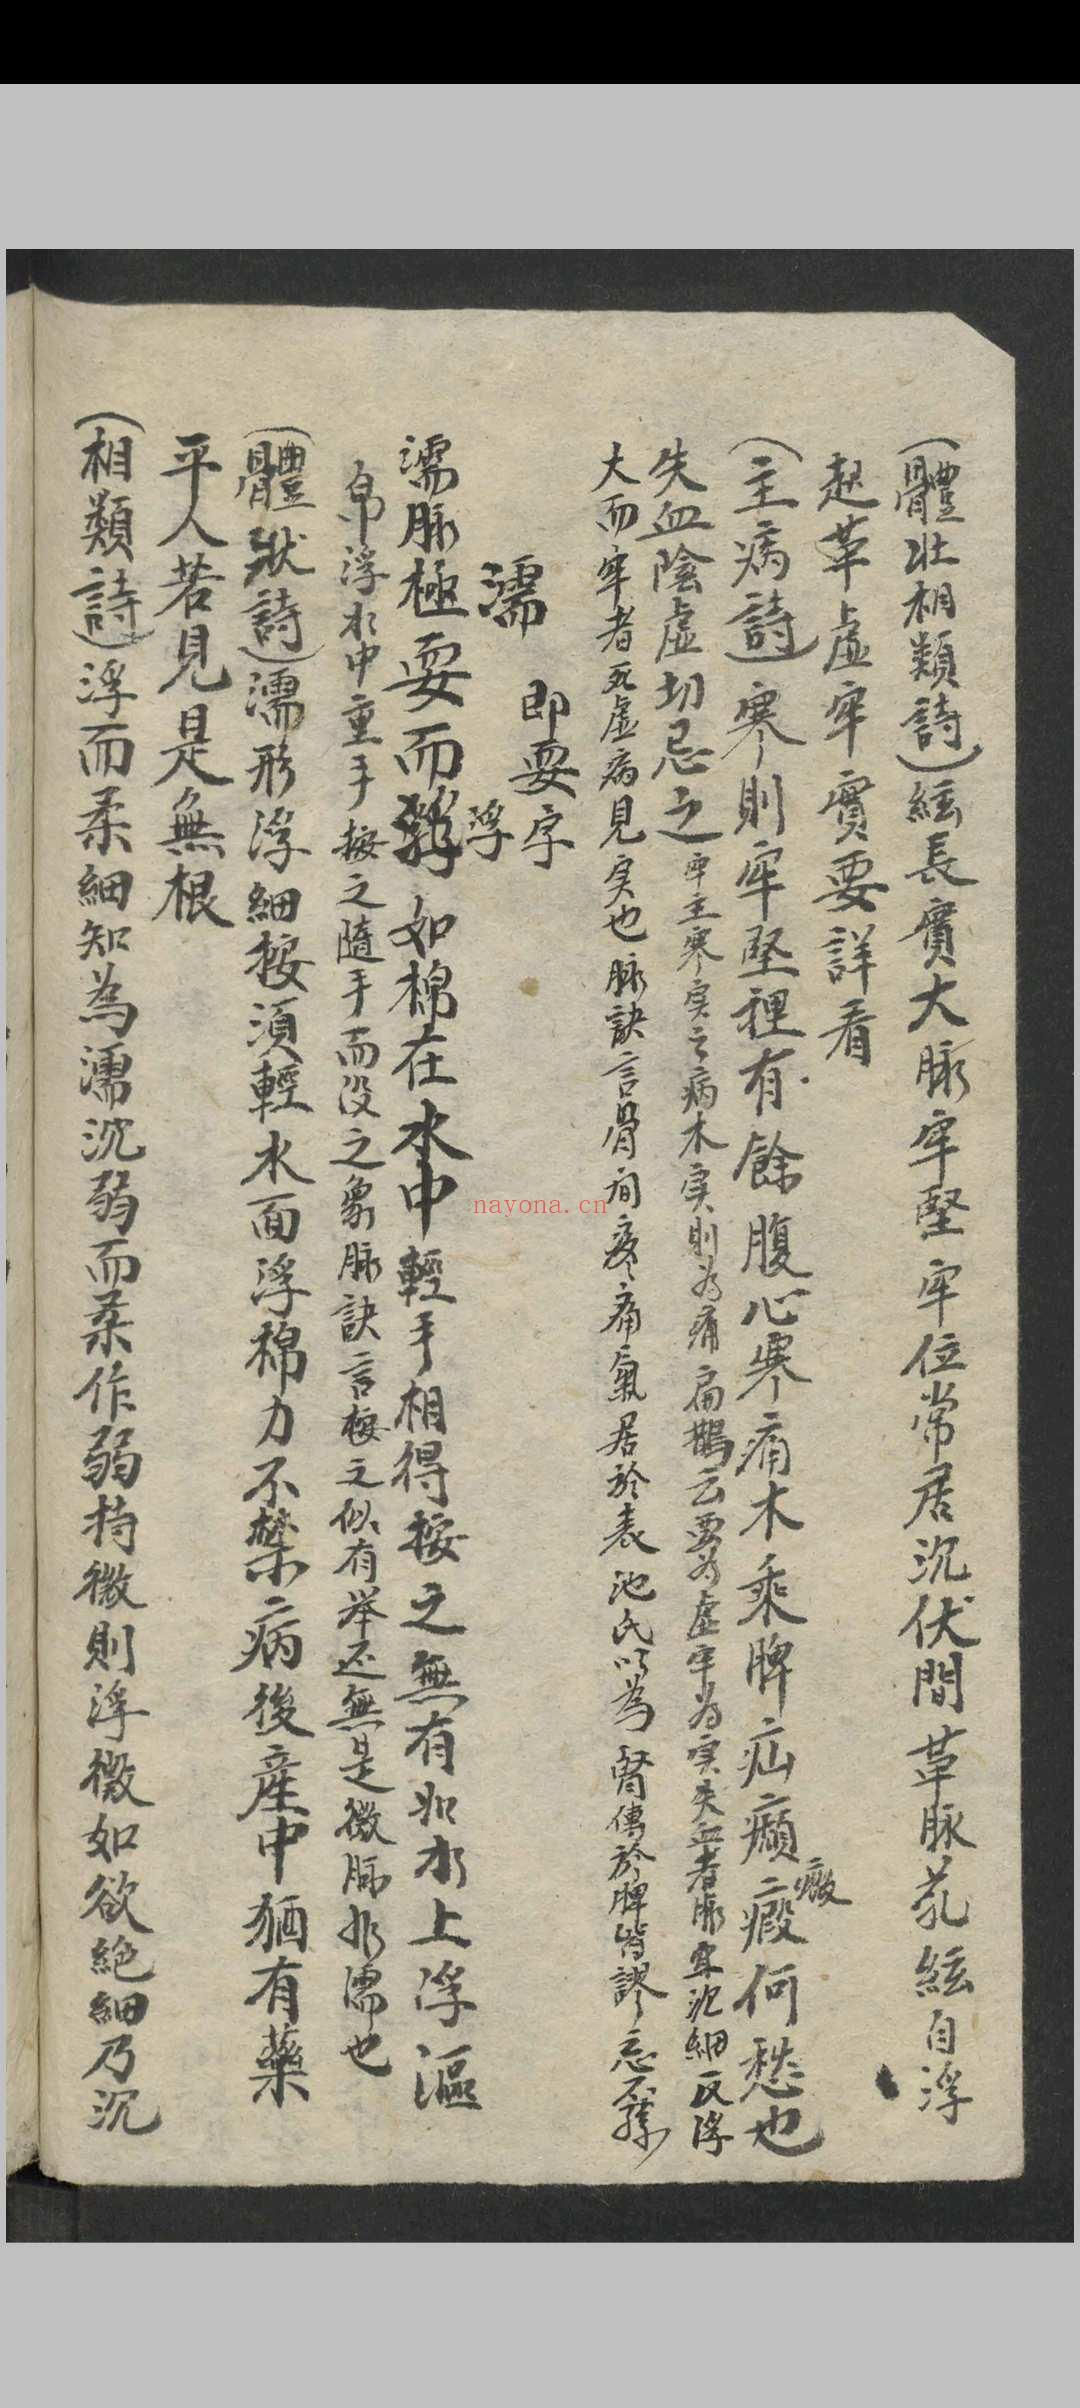 （體壯相類詩）絃長實大脉牢堅牢位常居沉伏間革脉芤絃自浮
起革虛牢實要詳看
（主病詩）寒則牢堅裡有餘腹心寒痛木乘脾疝癲瘕何愁也
癥
失血陰虛切忌之牢主寒实之病木实則为痛扁鵲云耎为虛牢为实失血者脉牢沉細反浮
大而牢者死虛病見实也脉訣言骨间疼痛氣居於表池氏以為腎傳於脾皆謬忘不經
濡即耎字
濡脉極耎而浮如棉在水中輕手相得按之無有如水上浮漚
帛浮水中重手按之隨手而没之象脉訣言按之似有举还無是微脉非濡也
（體狀詩）濡形浮細按須輕水面浮棉力不禁病後産中猶有藥
平人若見是無根
（相類詩）浮而柔細知為濡沉弱而柔作弱持微則浮微如欲絶細乃沉
nayona.cn